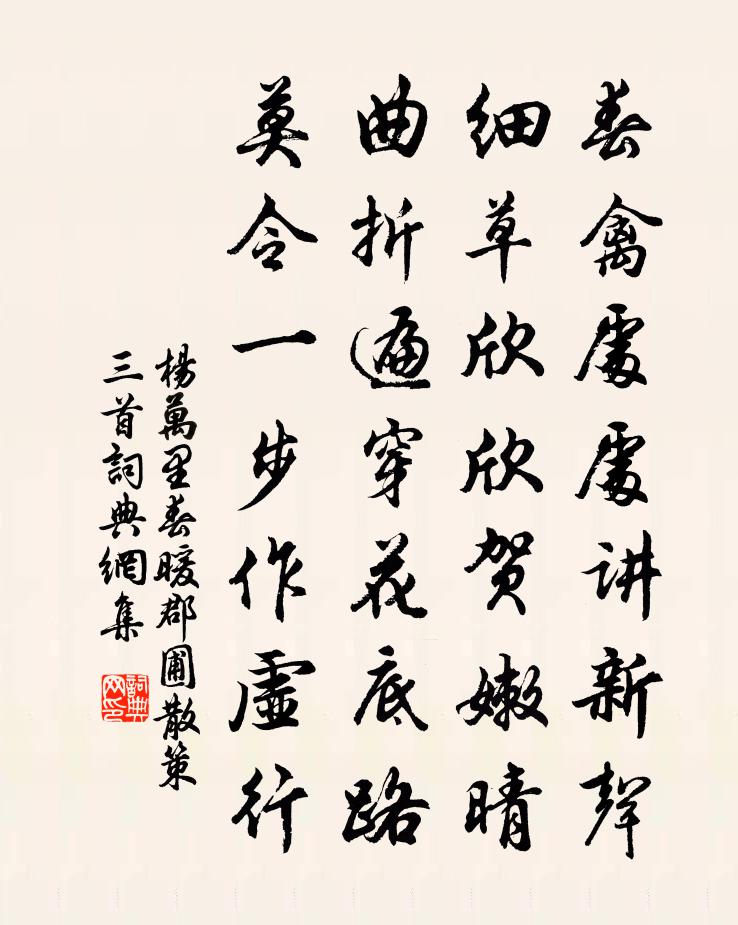 春禽處處讲新聲
細草欣欣贺嫩晴
曲折遍穿花底路
莫令一步作虛行
楊萬里春暖郡圃散策
三首詞典網集
詞典
网印